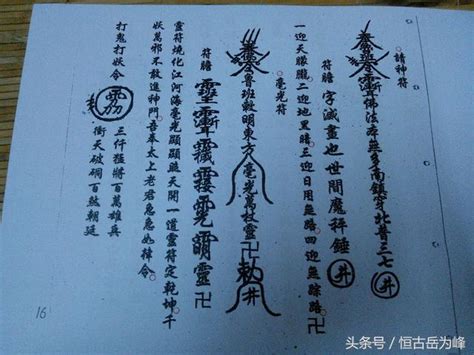 請神符
佛法本無多南鎮穿北昔三七井
符膽 字滅畫也世間魔秤錘 井
一迎天朦朧。二迎地黑暗三迎日月無路。四迎無踪路卍
毫光符
魯班敕明東方毫光萬杖靈卍勅井
符膽
靈符燒化江河海毫光顯顯照天開一道靈符定乾坤千
妖萬邪不敢進神門。吾奉太上老君急急如律令。
打鬼打妖令
三仟猛將百萬雄兵
衝天破洞百煞朝廷
16
头条号 / 恒古岳为峰